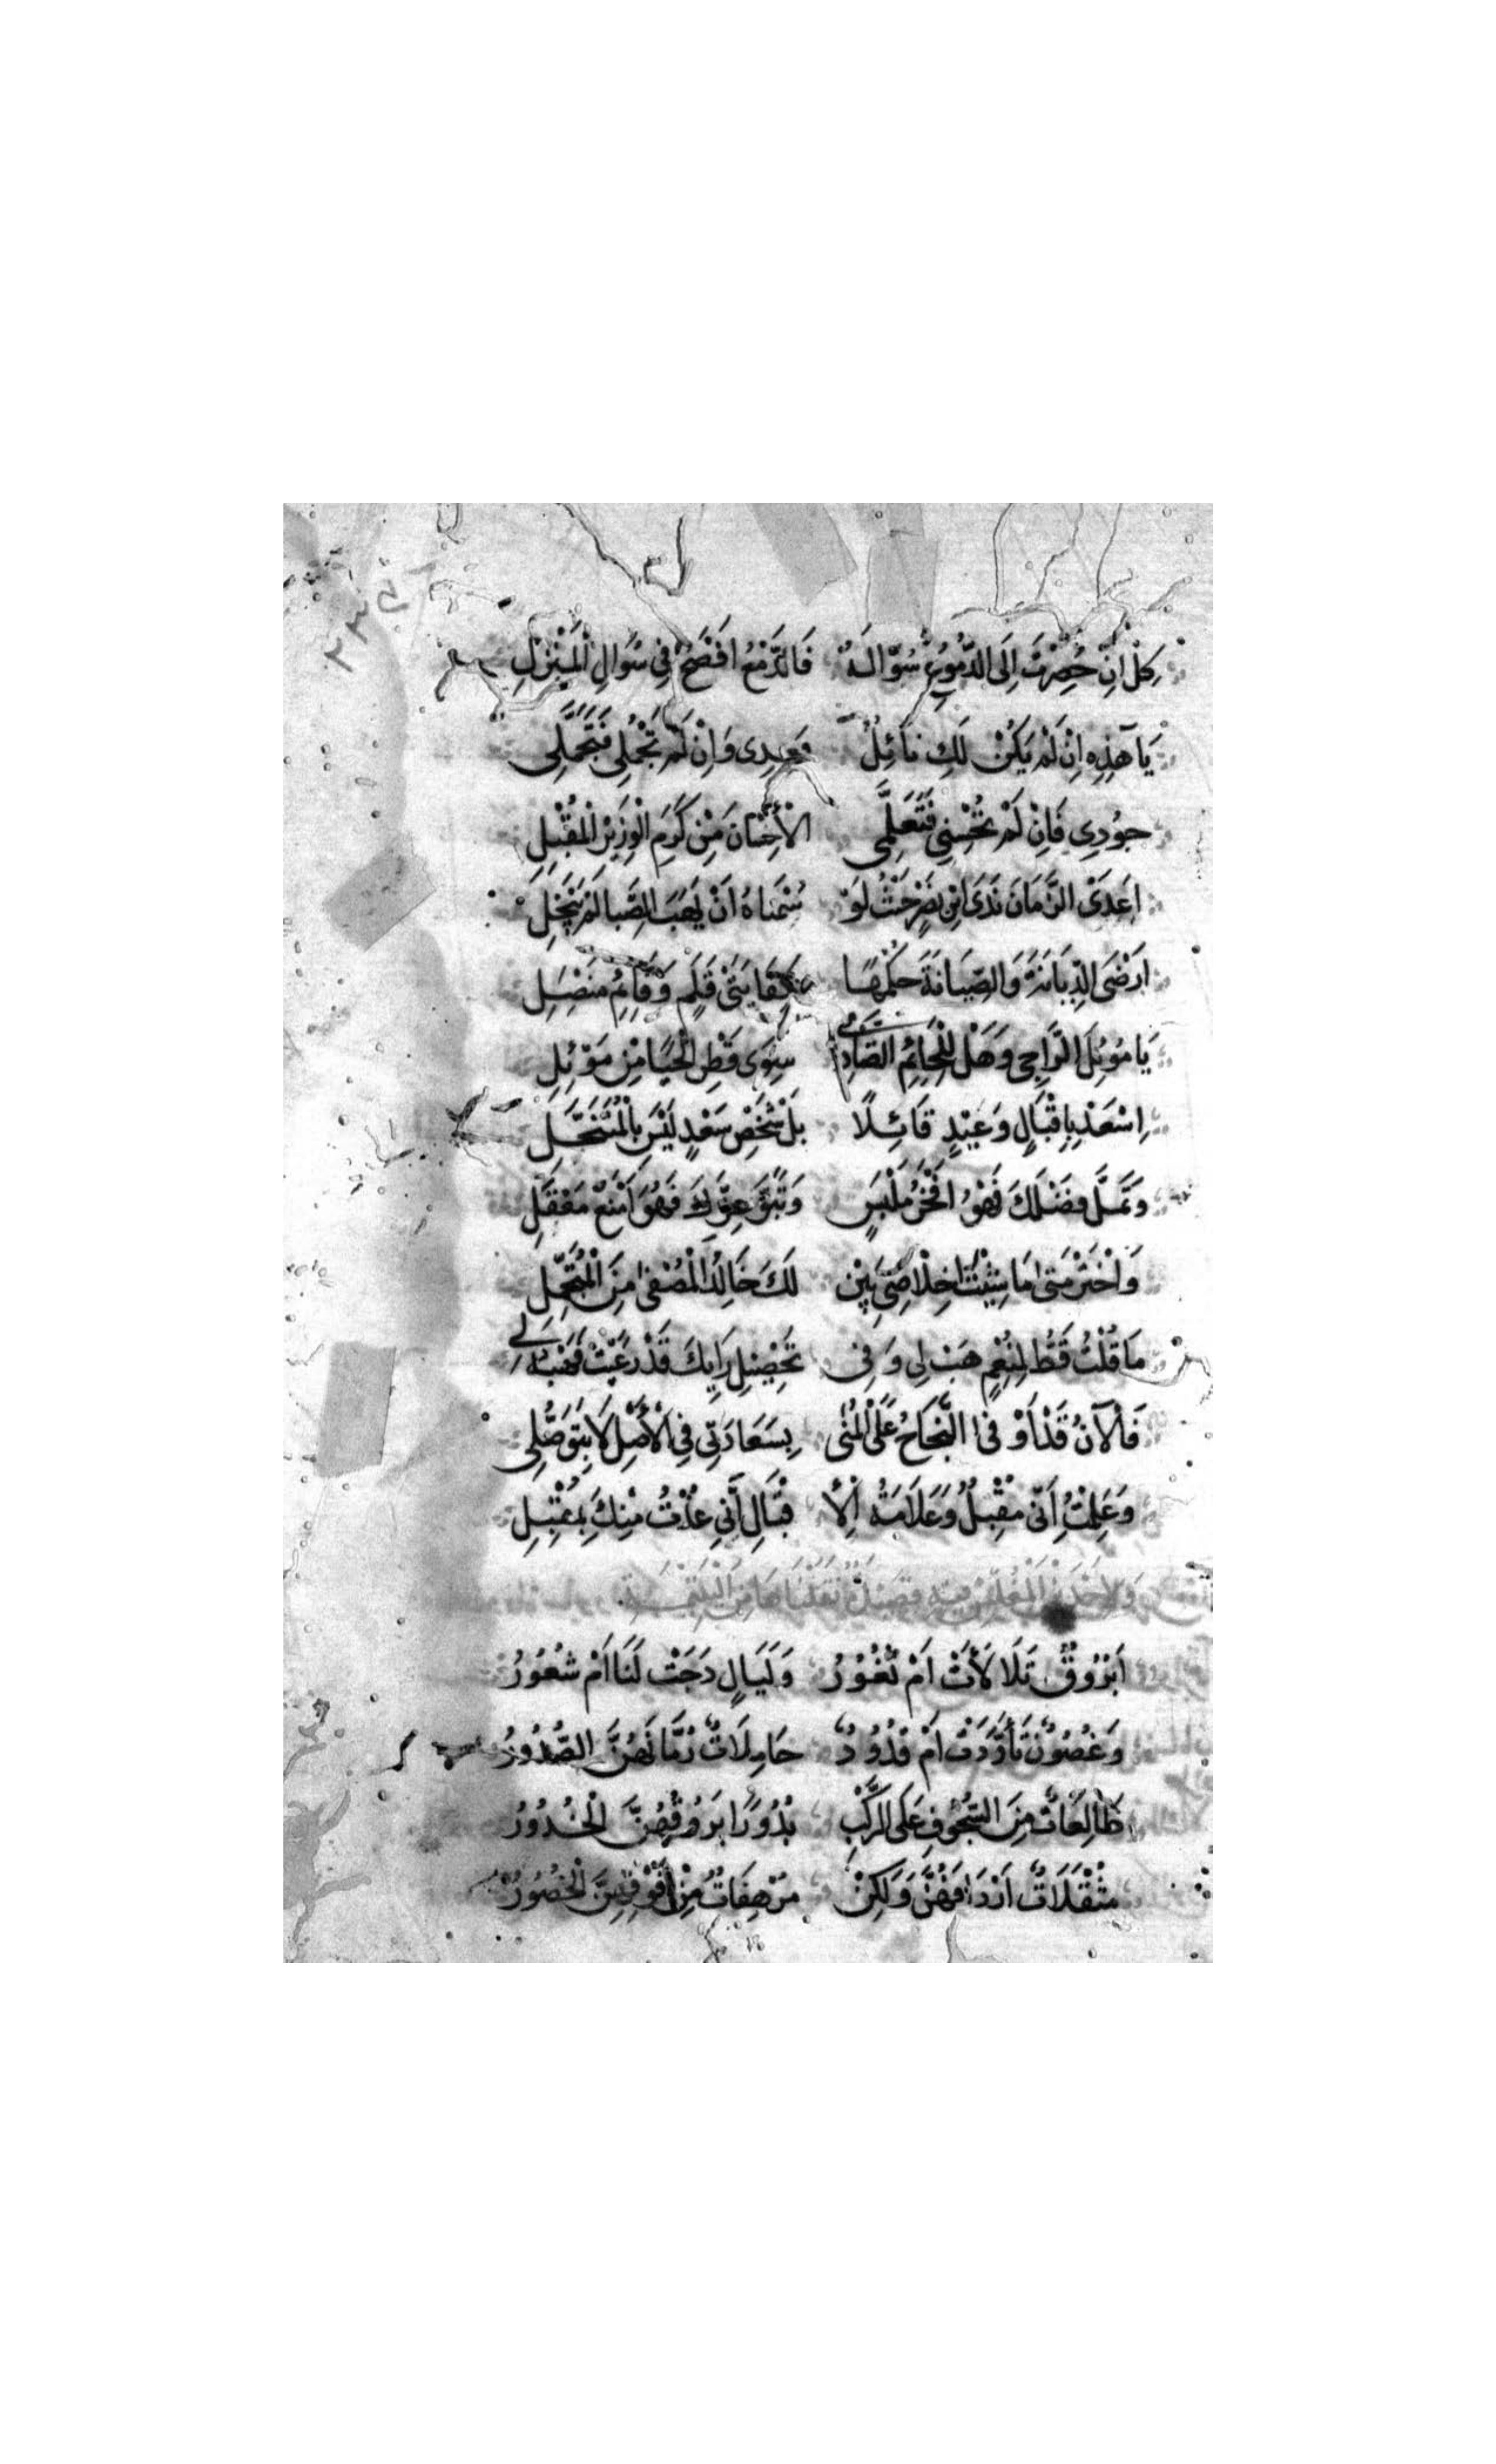 كِلْ اِنْ حُصِرْتَ اِلَى الدُّمُوعِ سُوَالَهُ فَالدَّمْعُ اَفْصَحُ فِي سُوَالِ الْمَنْزِلِ
يَا هَذِهِ اِنْ لَمْ يَكُنْ لَكِ نَائِلٌ فَعِدِى وَاِنْ لَمْ تُجْمِلِى فَتَجَمَّلِى
جُودِي فَاِنْ لَمْ تُحْسِنِي فَتَعَلَّمِى الْاِحْسَانَ مِنْ كَرَمِ الْوَزِيرِ الْمُقْبِلِ
اَعْدَى الزَّمَانَ نَدَى ابْنِ نَصْرٍ حَتَّى لَوْ سُمْنَاهُ اَنْ يَهَبَ الصِّبَا لَمْ يَبْخَلِ
اَرْضَى الدِّيَانَةَ وَالصِّيَانَةَ حُكْمُهَا بِكِفَايَتَىْ قَلَمٍ وَقَائِمِ مُنْصَلِ
يَا مَوْئِلَ الرَّاجِى وَهَلْ لِلْحَائِمِ الصَّادِي سِوَى قَطْرِ الْحَيَا مِنْ مَوْئِلِ
اِسْعَدْ بِاِقْبَالٍ وَعِيْدٍ قَائِلًا بَلْ شَخْصِ سَعْدٍ لَيْسَ بِالْمُتَنَحَّلِ
وَتَمَلَّ فَضْلَكَ فَهْوَ اَفْخَرُ مَلْبَسٍ وَتَبَقَّ عِزَّكَ فَهُوَ اَمْنَعُ مَعْقَلِ
وَاخْتَرْ مَتَى مَا شِئْتَ اِخْلَاصِي يَبِنْ لَكَ خَالِدُ الْمُصْفَى مِنَ الْمُتَجَمِّلِ
مَا قُلْتُ قَطُّ لِمُنْعِمٍ هَبْ لِى وَفِى تَحْصِيْلِ رَايِكَ قَدْ رَغِبْتُ فَهَبْهُ لِى
فَالْآنَ قَدْ اَوْفَى النَّجَاحُ عَلَى الْمُنَى بِسَعَادَتِي فِي الْاَصْلِ لَا بِتَوَصُّلِى
وَعَلِمْتُ اَنِّى مُقْبِلٌ وَعَلَامَةُ الْاِقْبَالِ اَنِّي عُذْتُ مِنْكَ بِمُقْبِلِ
وَلِاَحَدِ قَصِيْدَةٌ نَقَلْنَاهَا مِنَ الْيَتِيْمَةِ
اَبُرُوقٌ تَلَالَأَتْ اَمْ ثُغُوْرُ وَلَيَالٍ دَجَتْ لَنَا اَمْ شُعُوْرُ
وَغُصُوْنٌ تَأَوَّدَتْ اَمْ قُدُوْدٌ حَامِلَاتٌ رُمَّانَهُنَّ الصُّدُوْرُ
طَالِعَاتٌ مِنَ السُّجُوْفِ عَلَى الرَّكْبِ بُدُوْرًا بُرُوْقُهُنَّ الْخُدُوْرُ
مُثْقَلَاتٌ اَرْدَافُهُنَّ وَلَكِنْ مُرْهَفَاتٌ مِنْ فَوْقِهِنَّ الْخُصُوْرُ